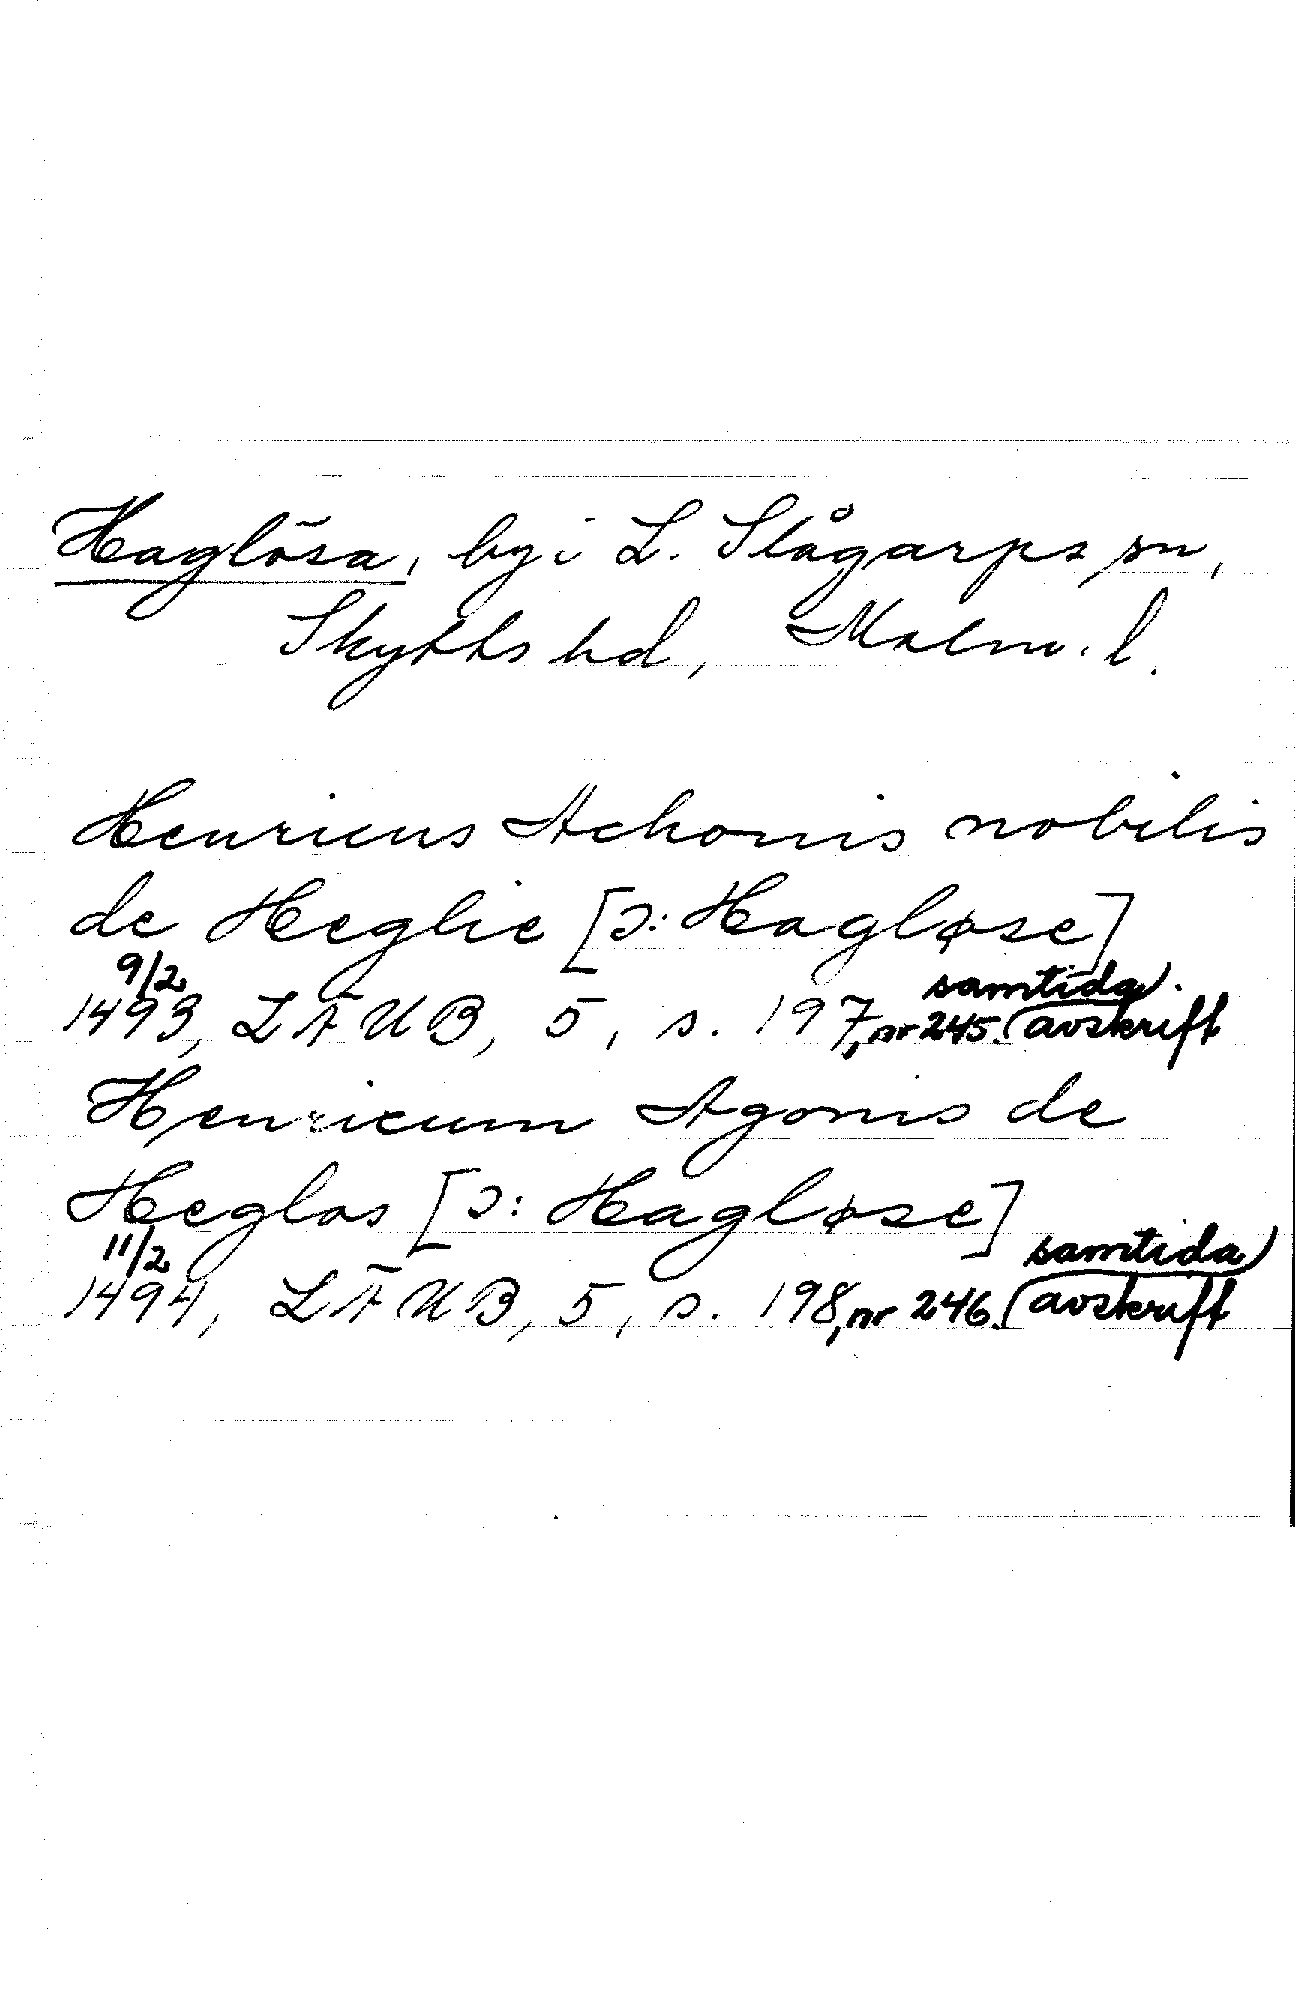 Haglösa, by i L. Slågarps sn,
Skytts hd, Malm. l.
Henricus Achonis nobilis
de Heglie [ɔ: Hagløse]
9/2
1493, LÄUB, 5, s. 197, nr 245. (samtida avskrift).
Henricum Agonis de
Heglos [ɔ: Hagløse]
11/2
1494, LÄUB, 5, s. 198, nr 246. (samtida avskrift)